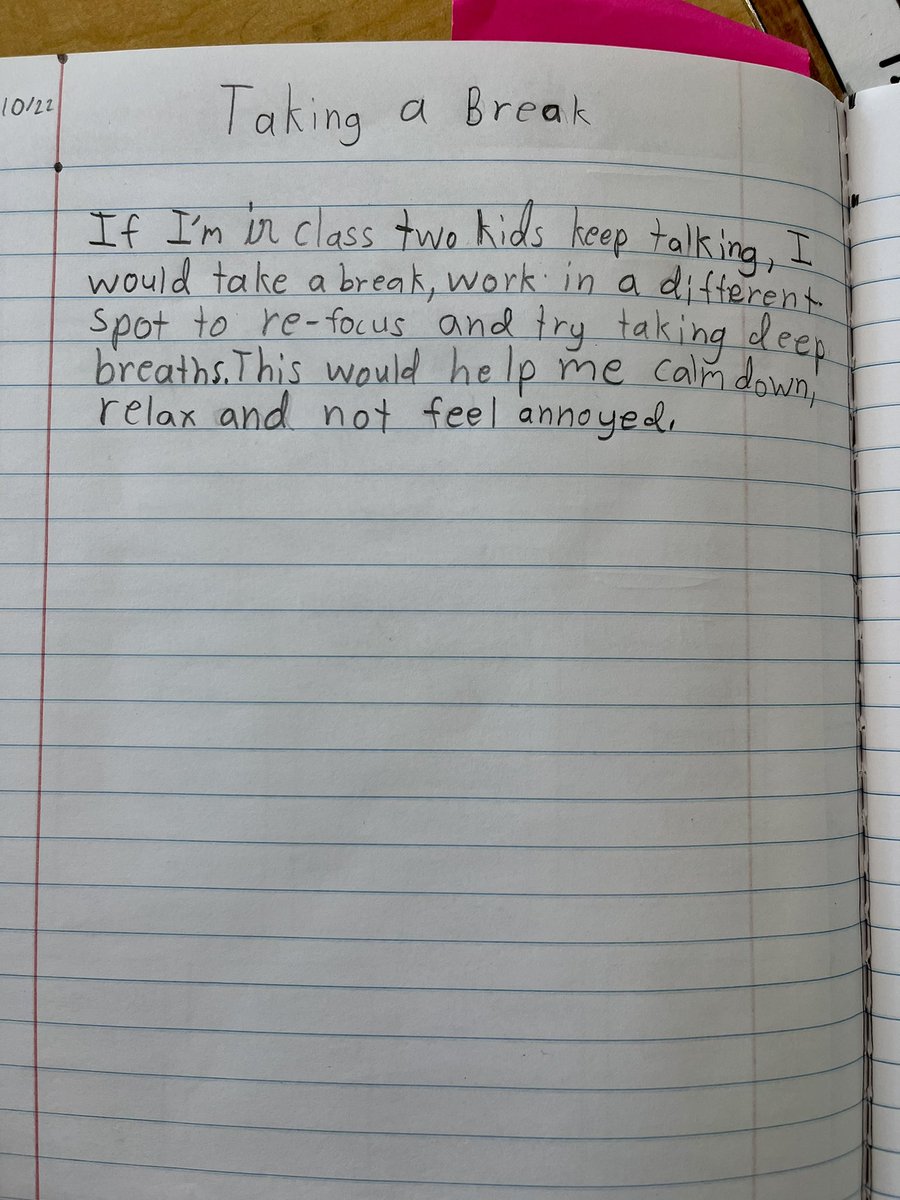 10/22
Taking a Break
If I'm in class two kids keep talking, I
would take a break, work in a different
spot to re-focus and try taking deep
breaths. This would help me calm down,
relax and not feel annoyed.